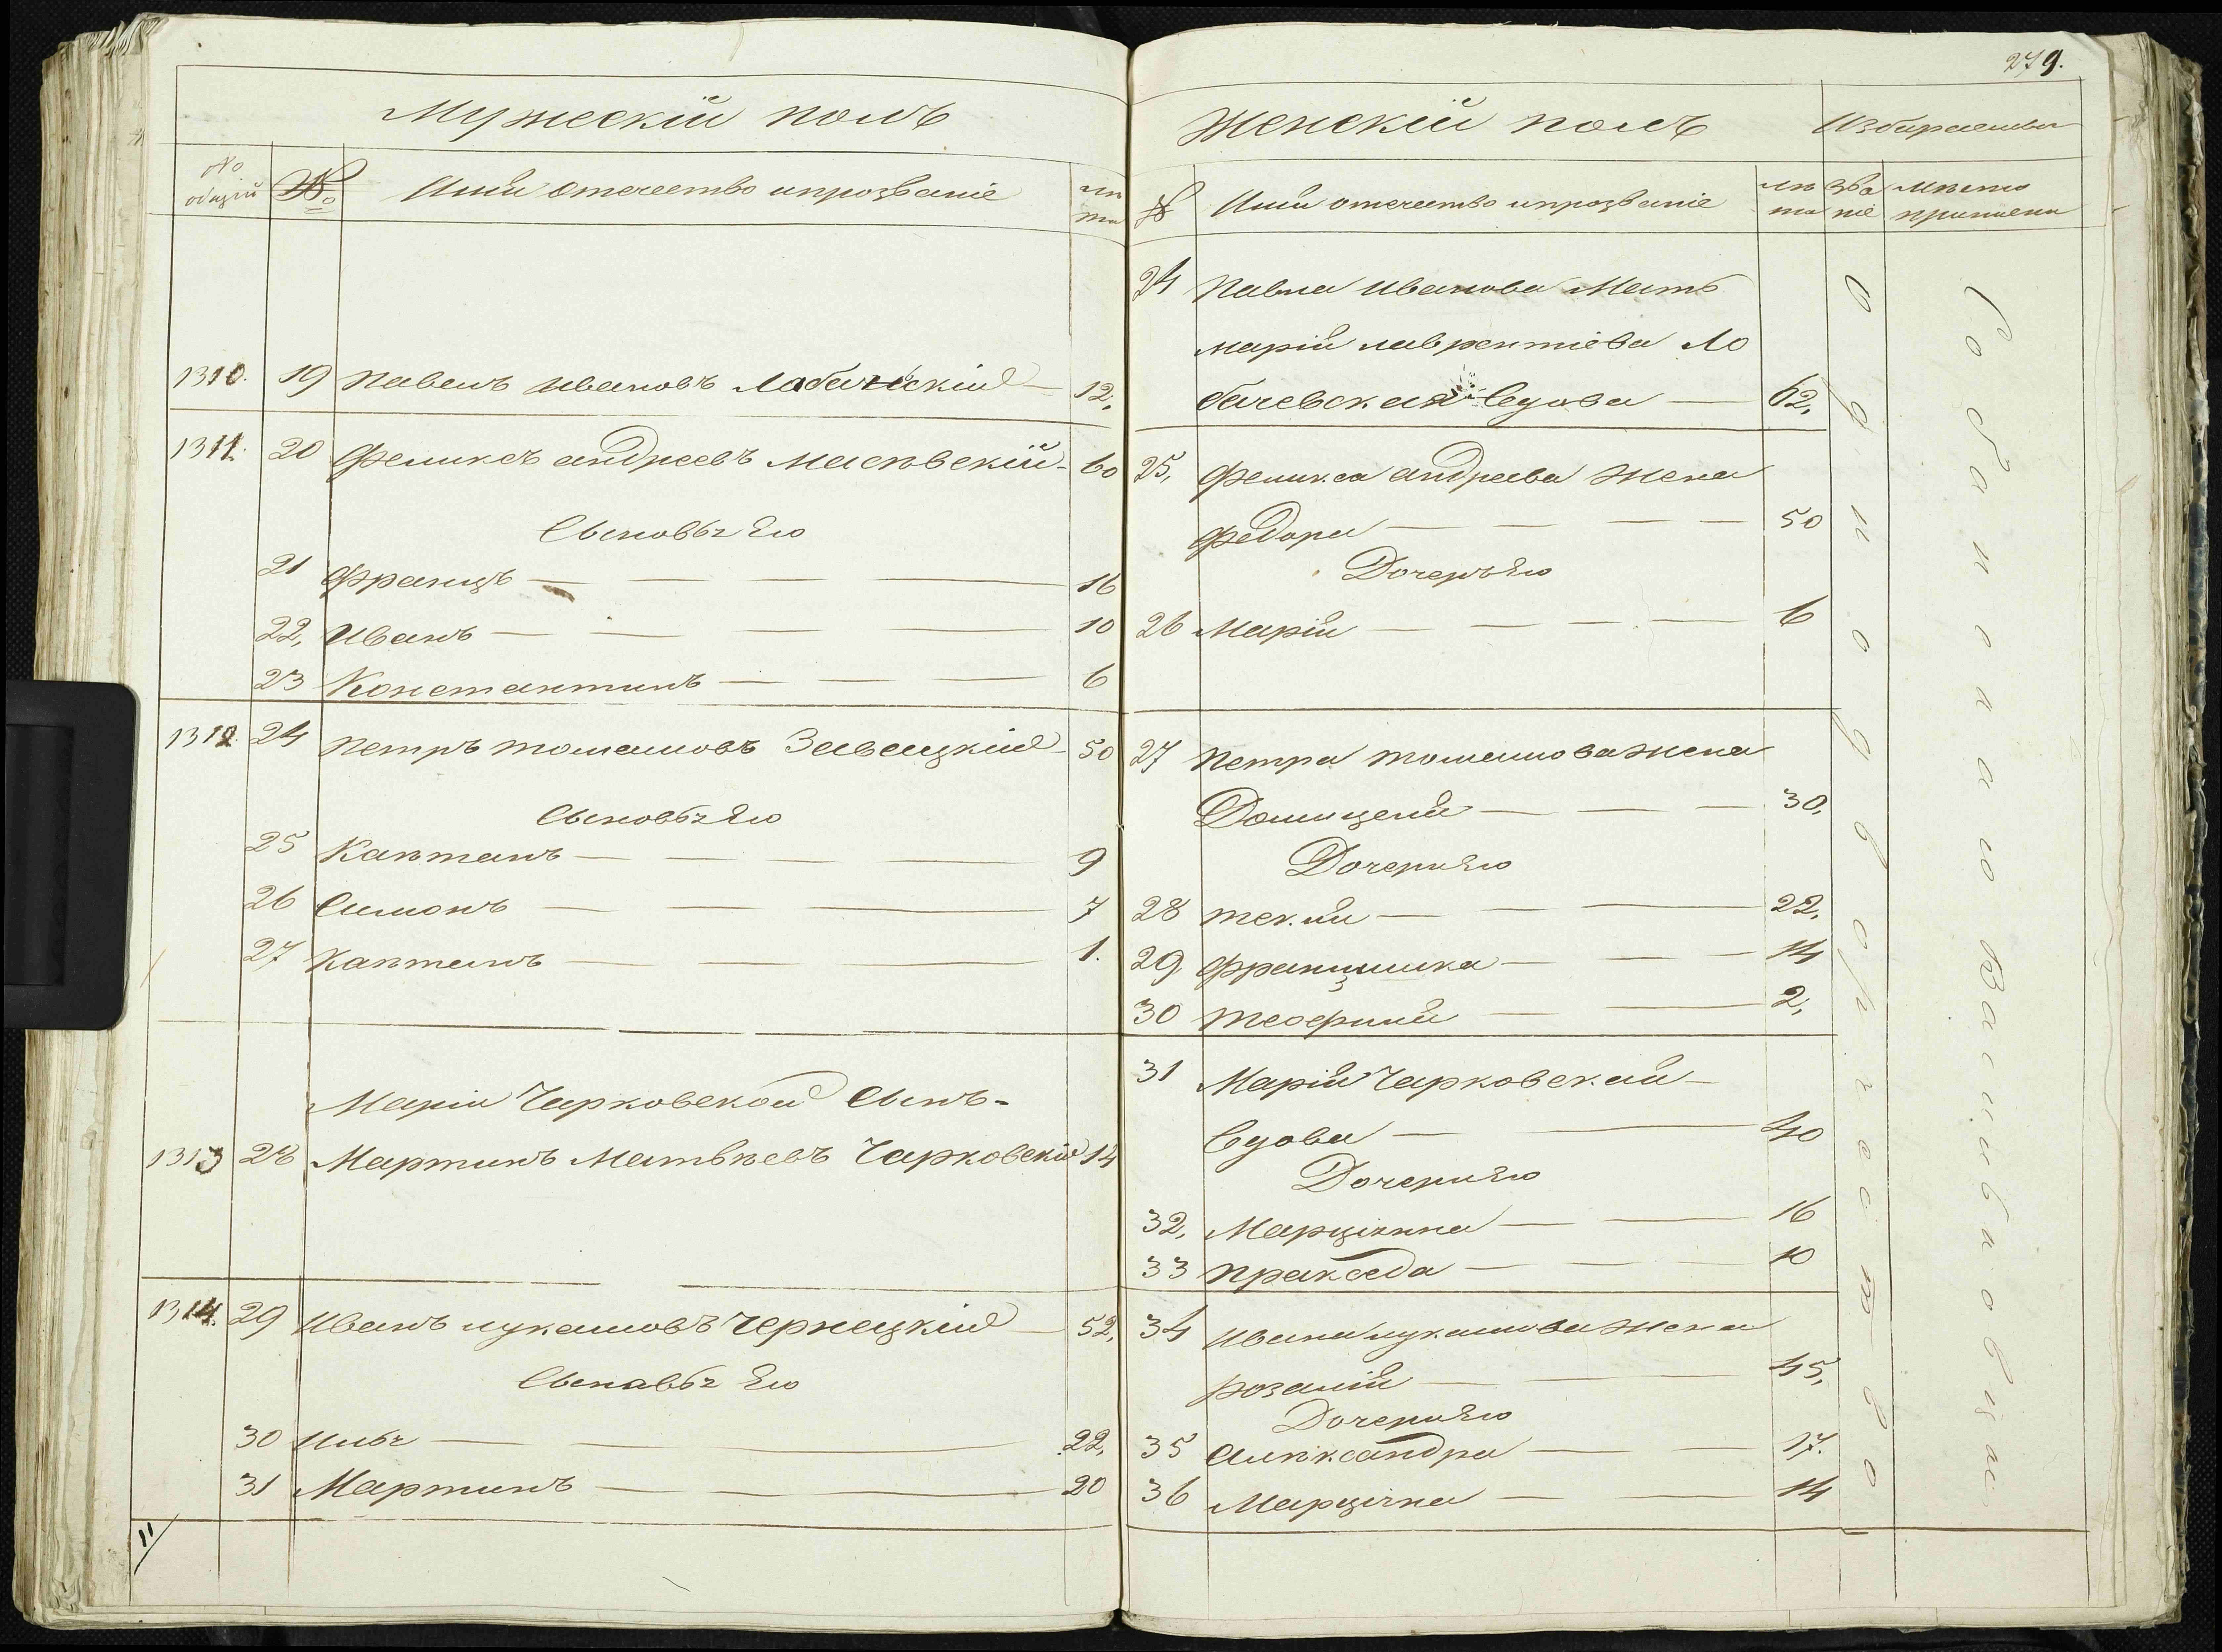 279.
Мужескій полъ
№ общій
№
Имя отечество и прозваніе
лѣта
1310. 19 Павелъ Ивановъ Лобачевскій — 12,
1311. 20 Феликсъ Андреевъ Маевскій — 60
Сыновья Его
21 Францъ — 16
22, Иванъ — 10
23 Константинъ — 6
1312. 24 Петръ Томашовъ Завацкій — 50
Сыновья Его
25 Каѣтанъ — 9
26 Симонъ — 7
27 Каѣтанъ — 1.
Маріи Чарковской Сынъ -
1313 28 Мартинъ Матвѣевъ Чарковскій 14
1314. 29 Иванъ Лукашовъ Чернецкій — 52,
Сынавья Его
30 — 22,
31 Мартинъ — 20
11
Женскій полъ
№
Имя отечество и прозваніе
лѣта
званіе
мѣсто
24 Павла Иванова Мать
Марія Лаврентіева Ло
бачевская Вдова — 62,
25, Феликса Андреева Жена
Федора — 50
Дочерь Его
26 Марія — 6
27 Петра Томашова Жена
Домицеля — 30,
Дочери Его
28 Текля — 22,
29 Францишка — 14
30 Теофиля — 2,
31 Марія Чарковская —
Вдова — 40
Дочери Ею
32, Марціянна — 16
33 Пракседа — 10
34 Ивана Лукашова Жена
Розалія — 45,
Дочери Его
35 Алѣксандра — 17.
36 Марціяна — 14
Однодворчество